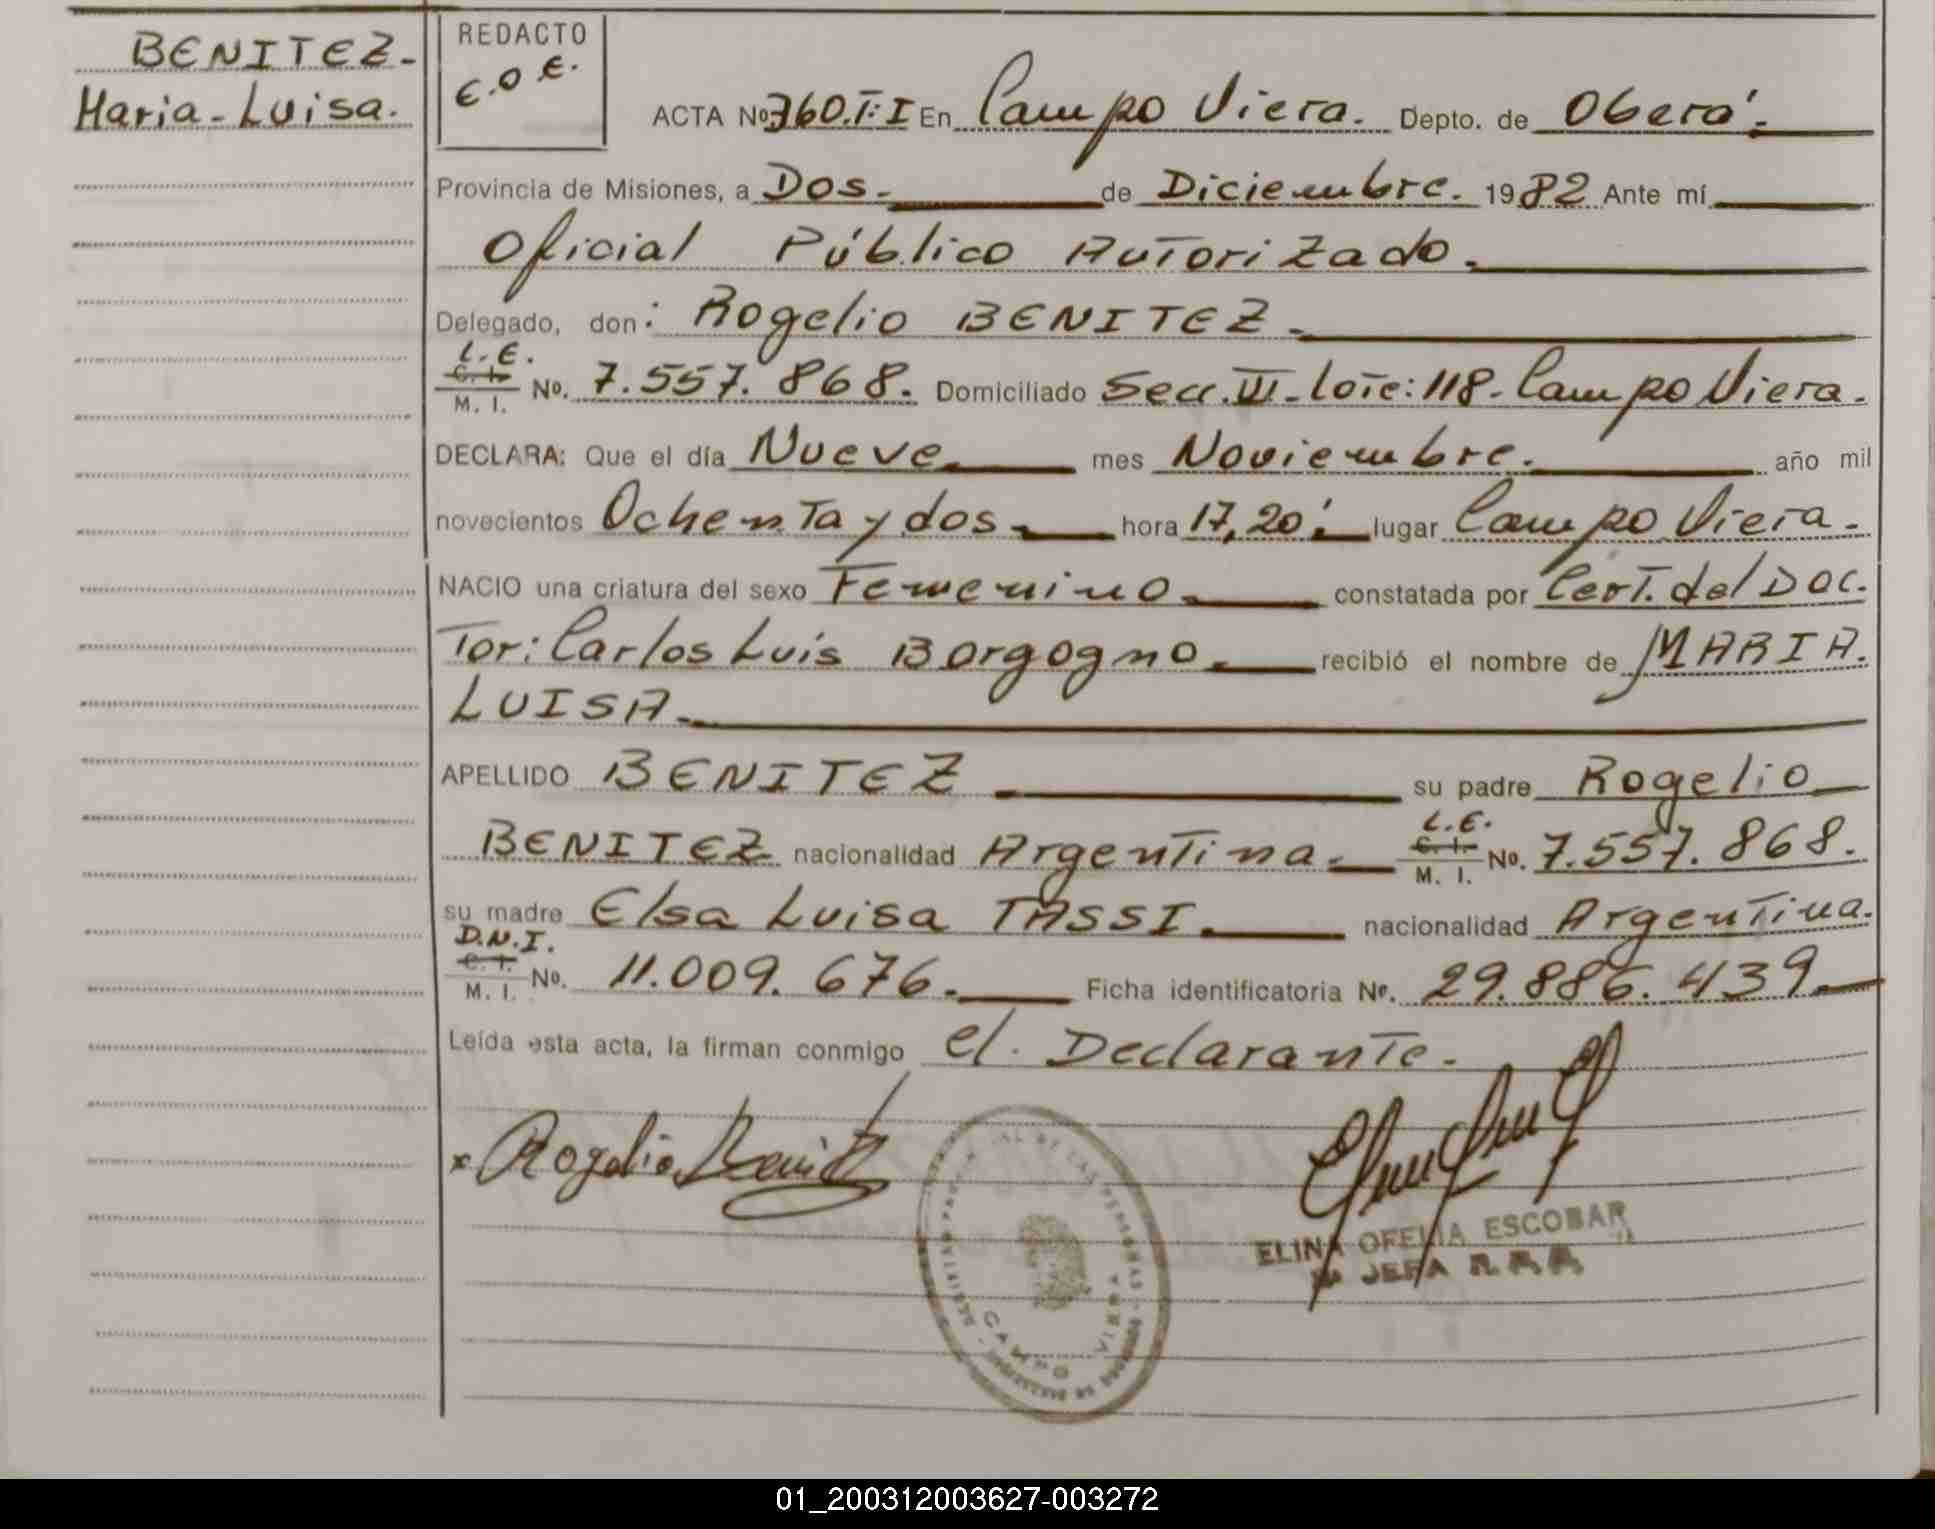 BENITEZ-
Maria-Luisa.
REDACTO
E.O.E.
ACTA Nº 360.T:I En Campo Viera. Depto. de Oberá.
Provincia de Misiones, a Dos. de Diciembre. 1982 Ante mí
Oficial Público Autorizado.
Delegado, don: Rogelio BENITEZ.
L.E.
C. I.
M. I. No. 7.557.868. Domiciliado Secc. VI-lote:118-Campo Viera.
DECLARA: Que el día Nueve mes Noviembre. año mil
novecientos Ochenta y dos. hora 17,20' lugar Campo Viera.
NACIO una criatura del sexo Femenino. constatada por Cert. del Doc.
Tor: Carlos Luis Borgogno. recibió el nombre de MARIA.
LUISA.
APELLIDO BENITEZ su padre Rogelio
BENITEZ nacionalidad Argentina. L.E. C. I. M. I. No. 7.557.868.
su madre Elsa Luisa TASSI. nacionalidad Argentina.
D.N.I.
C. I.
M. I. No. 11.009.676. Ficha identificatoria Nº. 29.886.439
Leída esta acta, la firman conmigo el. Declarante.
x Rogelio Benitez
ELINA OFELIA ESCOBAR
JEFA
DE LAS PERSONAS
CAMPO VIERA
01_200312003627-003272